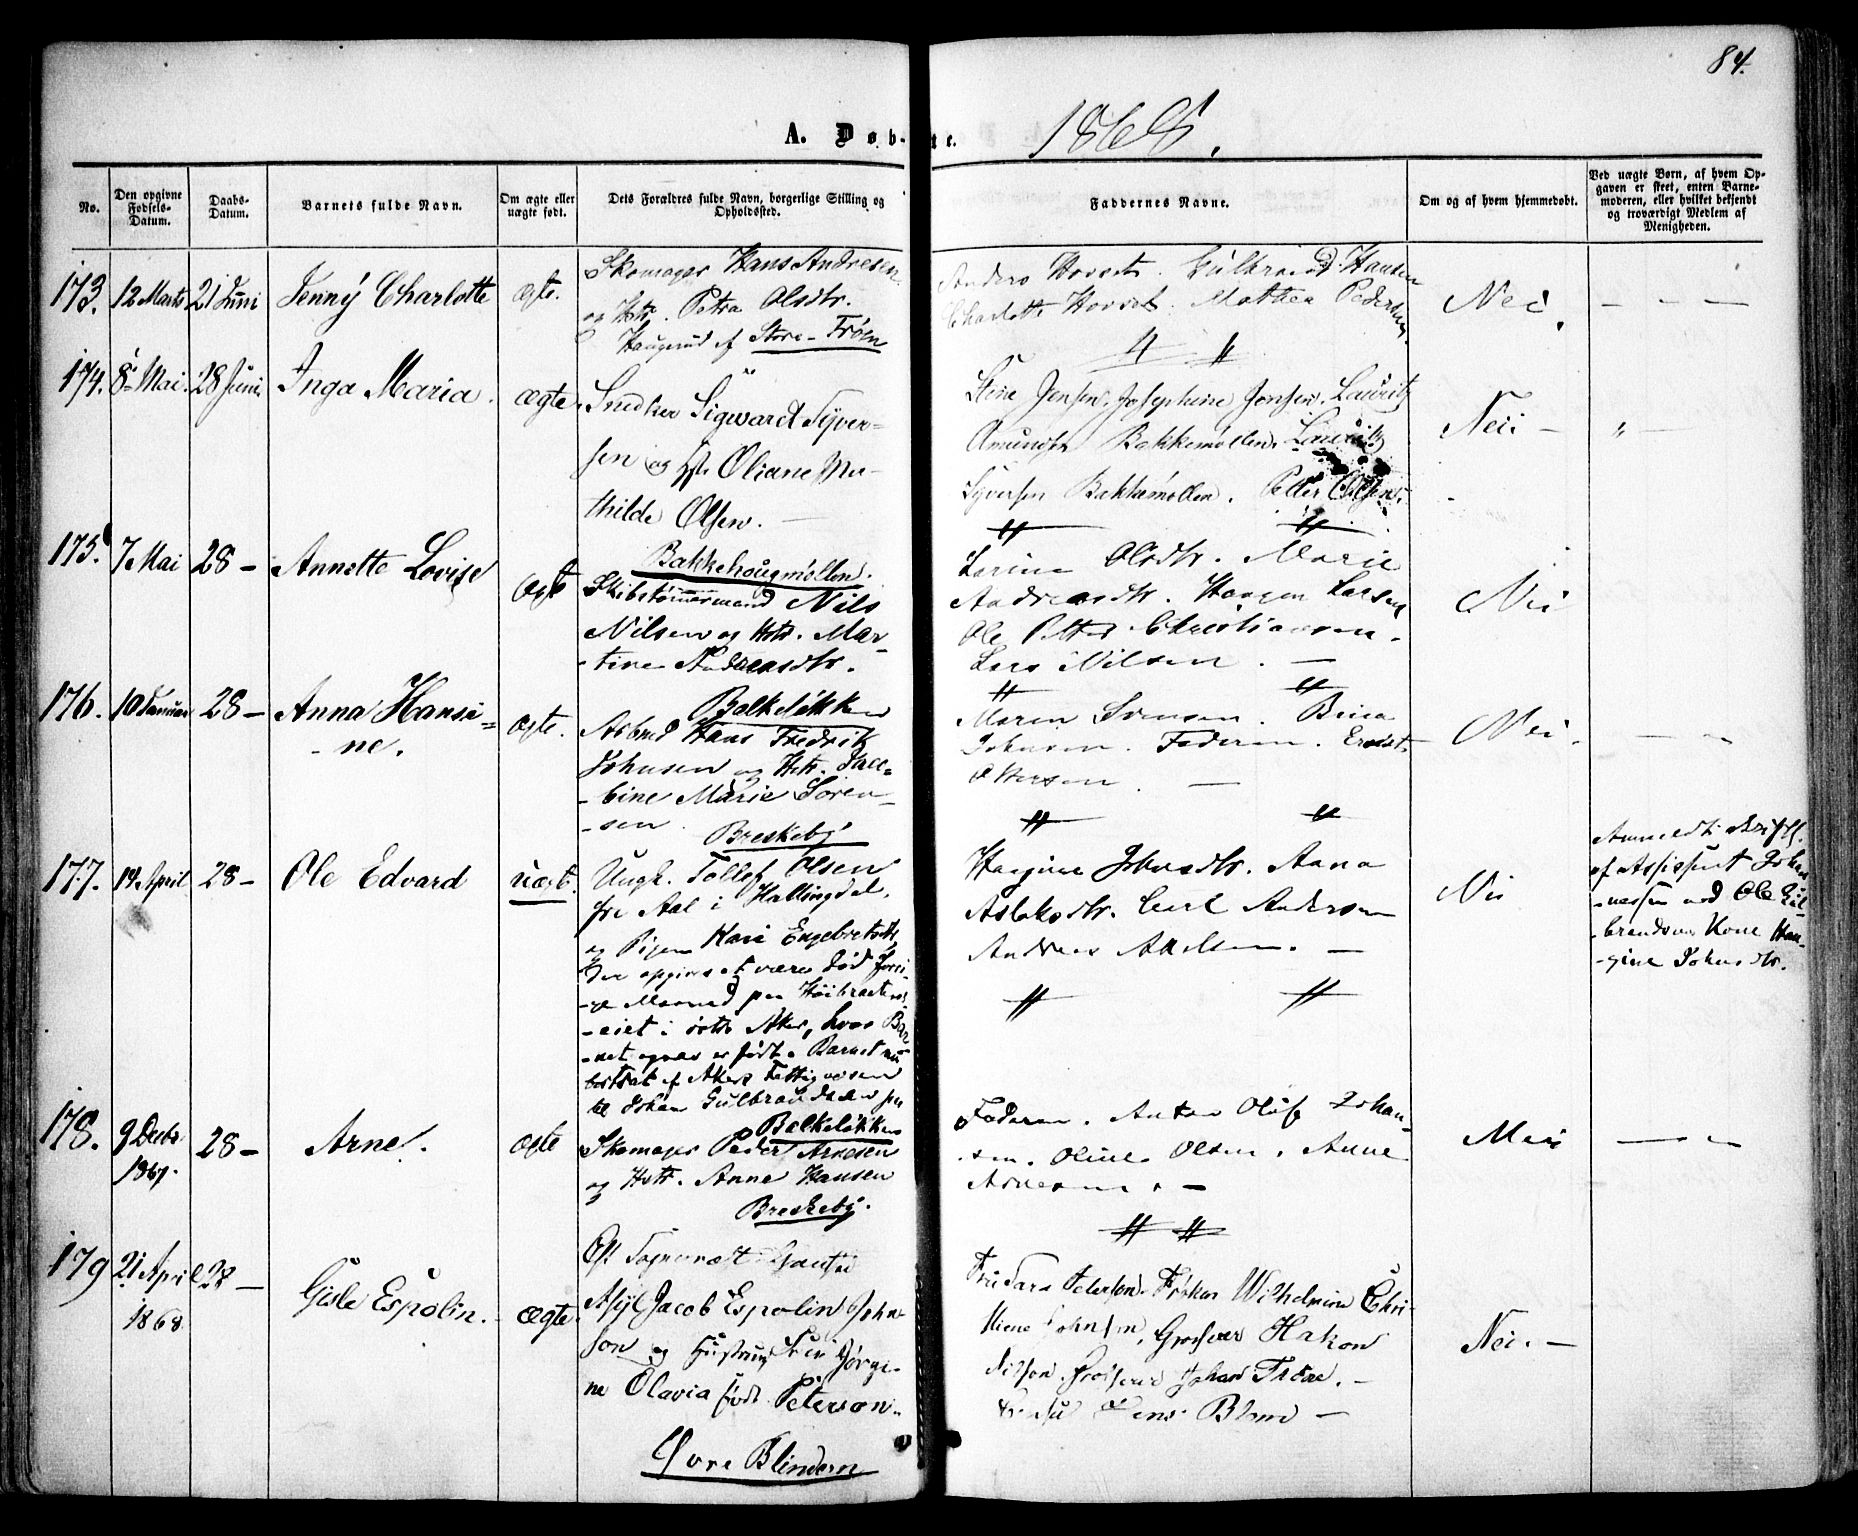 84.
A. Døb-te. 1868.
No.
Den opgivne Fødsels-Datum.
Daabs-Datum.
Barnets fulde Navn.
Om ægte eller uægte født.
Dets Forældres fulde Navn, borgerlige Stilling og Opholdssted.
Faddernes Navne.
Om og af hvem hjemmedøbt.
Ved uægte Børn, af hvem Opgaven er skeet, enten Barnemoderen, eller hvilket bekjendt og troværdigt Medlem af Menigheden.
173. 12 Marts 21 Juni Jenny Charlotte ægte.
Skomager Hans Andresen
og Hstr. Petra Olsdtr.
Haugerud af Store-Frøen
Anders Hovset. Gulbrand Hansen
Charlotte Hovset. Mathea Pedersen
Nei. — — —
174. 8 Mai. 28 Juni. Inga Maria. ægte.
Snedker Sigward Syver-
sen og Hst. Oliane Ma-
thilde Olsen. —
Bakkehougmøllen.
Stine Jensen. Josephine Jonsen. Lauritz
Amundsen Bakkemøllen. Lauritz
Syversen Bakkemøllen. Petter Olsen.
Nei — " —
175. 7 Mai 28 — Annette Lovise ægte
Skibstømmermand Nils
Nilsen og Hstr. Mar-
-tine Andreasdtr.
Balkeløkken
Larine Olsdtr. Marie
Andreasdtr. Haagen Larsen
Ole Petter Christiansen.
Lars Nilsen. —
Nei
176. 10 Januar 28 — Anna Hansi=
-ne. ægte.
Arbmd Hans Fredrik
Johnsen og Hstr. Jaco-
-bine Marie Soren-
-sen.
Breskeby
Maren Svensen. Brina
Johnsen. Faderen. Ernst
Nei. — —
177. 14 April 28 — Ole Edvard uægt.
Ungk. Tollef Olsen
fra Aal i Hallingdal.
og Pigen Kari Engebretsdtr.
Der opgives at være død forri-
-ge Maaned paa Høibraaten
-eiet i østre Aker, hvor Bar
-net ogsaa er født. Barnet nu
bortsat af Akers Fattigvæsen
til Johan Gulbrandsen paa
Balkeløkken
Hangine Johnsdtr. Anna
Aslaksdtr. Carl Andersen
Andreas Axelsen. —
Nei
Anmeldt skriftl.
af Assistent Johan
-nessen ved Ole Gul-
-brandsens Kone Han-
-gine Johnsdtr.
178. 9 Decbr 28 — Arne. ægte
1867.
Skomager Peder Arnesen
og Hstr. Anne Hansen
Breskeby.
Faderen. Anton Oluf Johan-
-sen. Oline Olsen. Anne
Arnesen. —
Nei — —
179 21 April 28 — Gisle Espolin. ægte.
1868.
Asyl Jacob Espolin John-
son og Hustru Jør gi-
ne Olavia født Peterson.
Øvre Blindern
Fru Sara Peterson. Frøken Wilhelmine Chri-
stiene Johnson, Grosserer Hakon
Nilson. Grosserer Johan Thrane. —
Jens Blom —
Nei. —